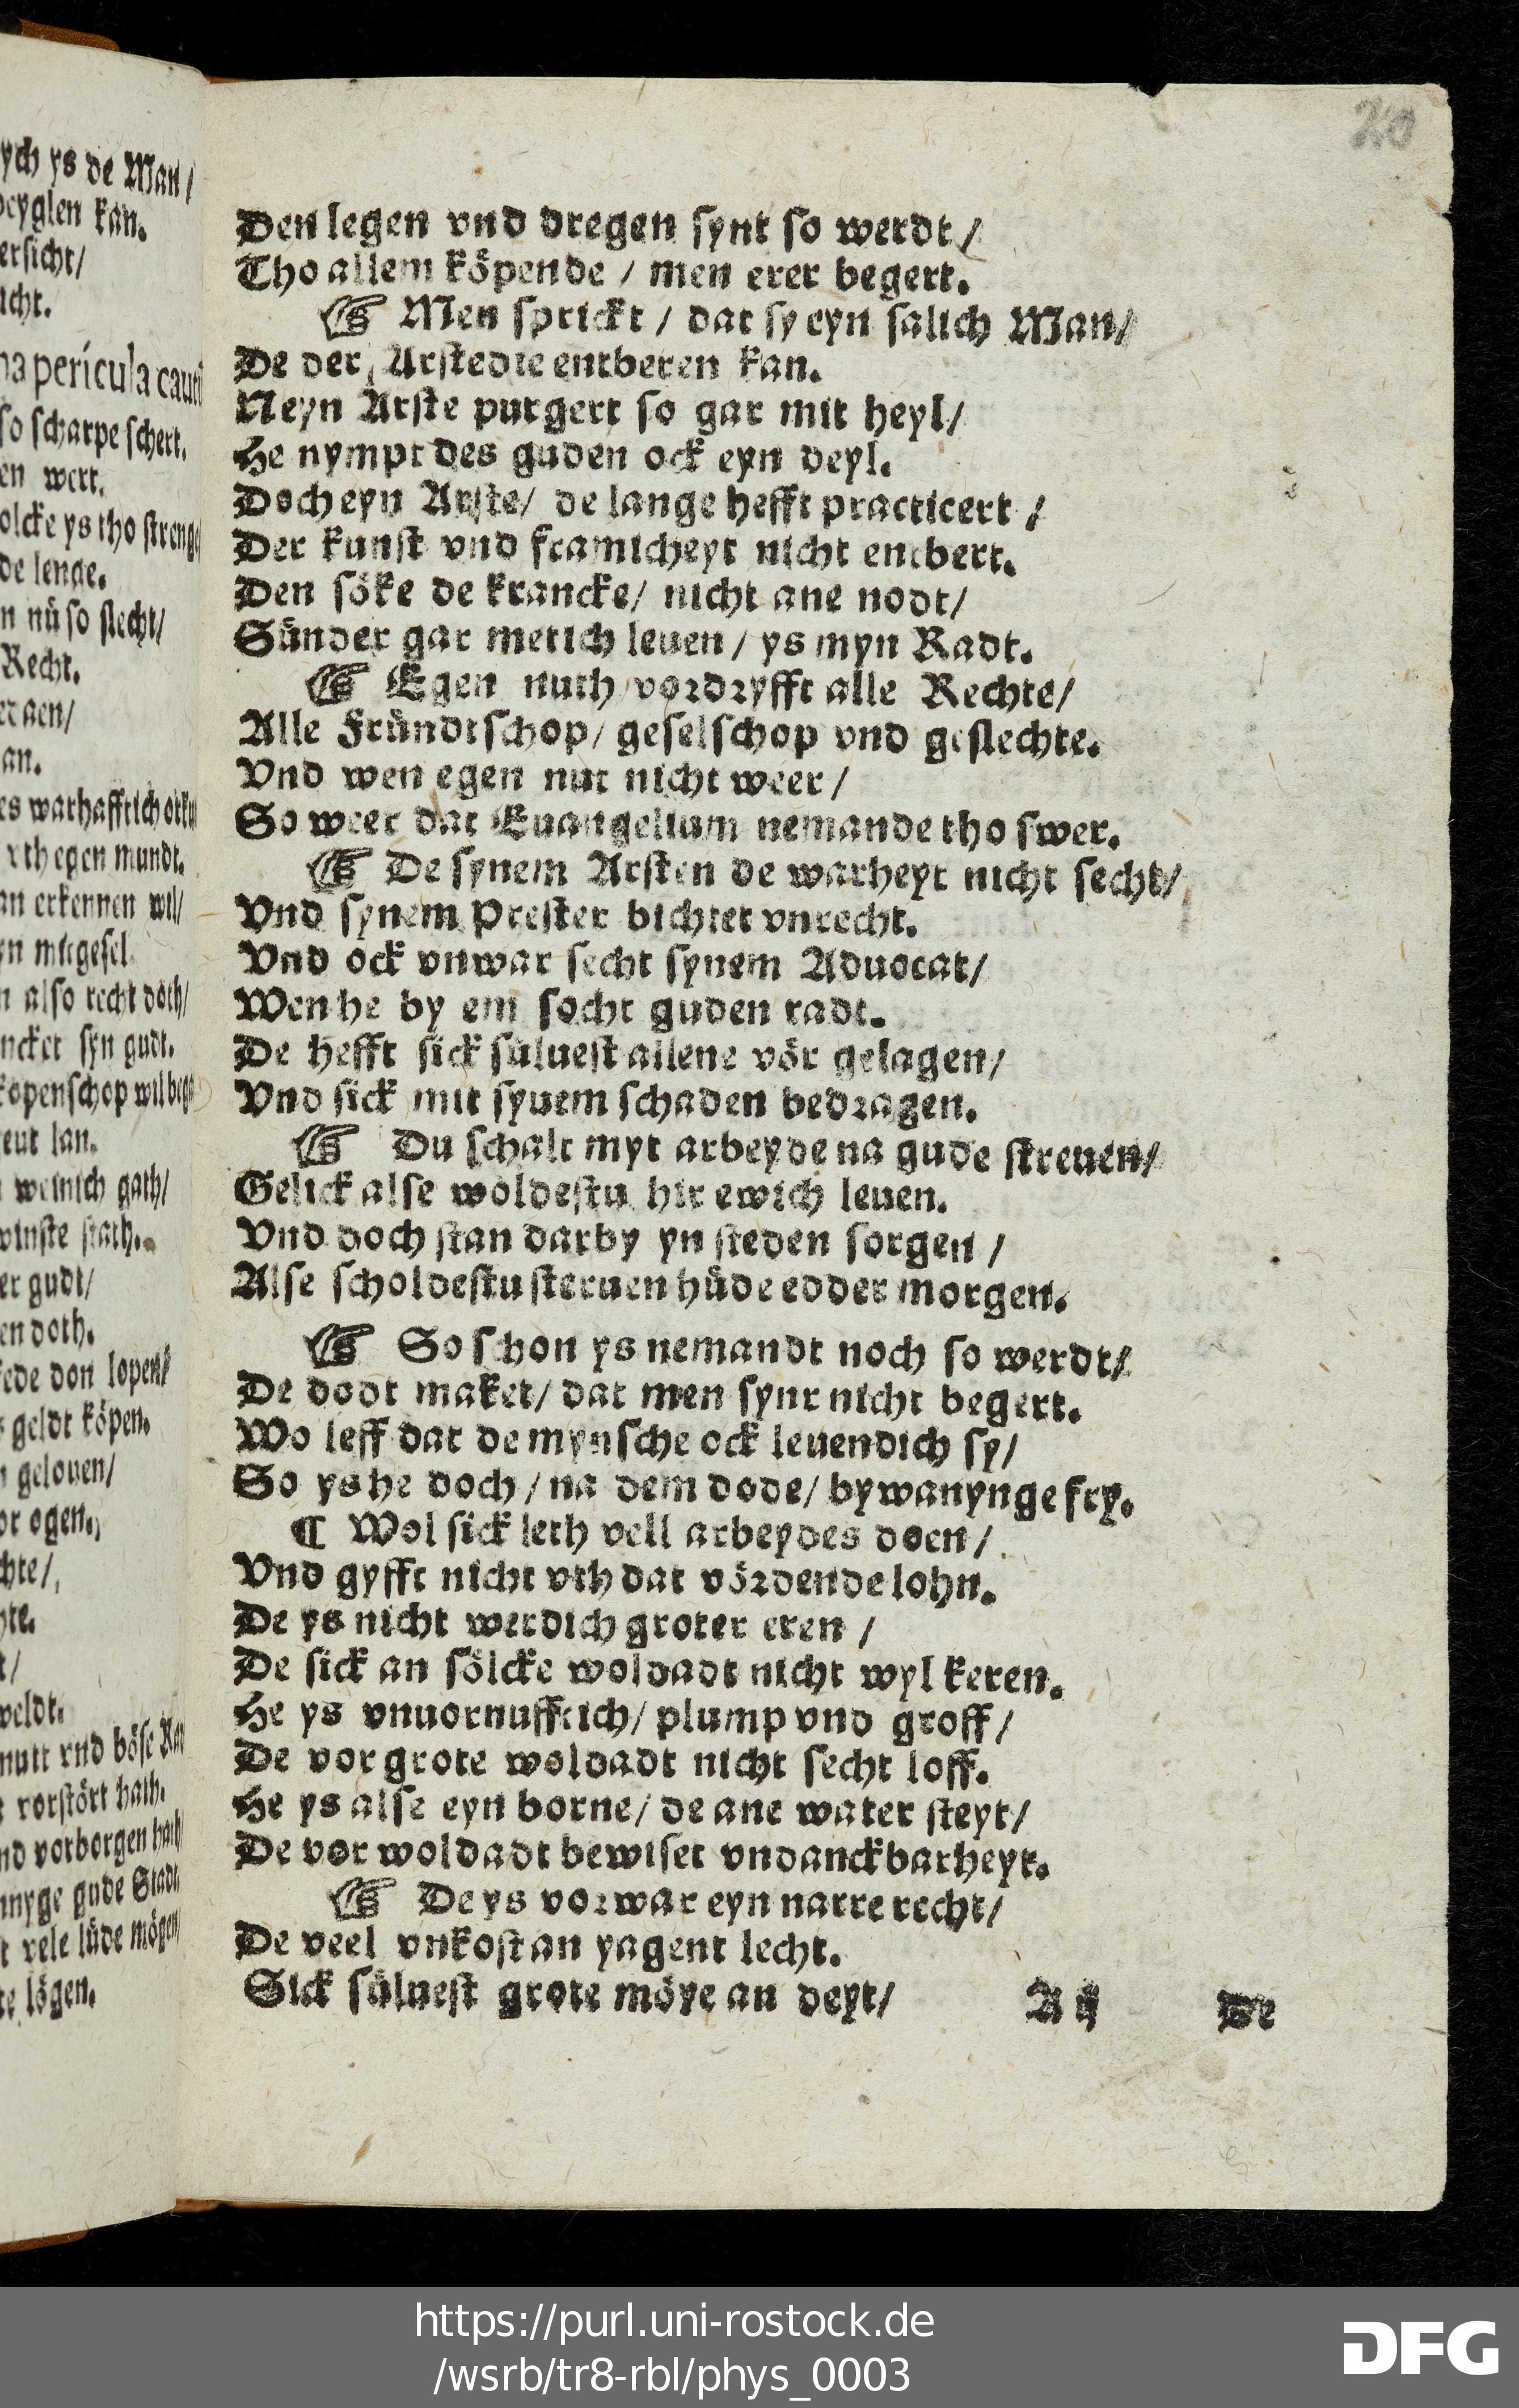 ych ys de Man /
deyglen kan.
ersicht/
icht.
na pericula cauti
so scharpe schert.
en wert.
olcke ys tho strenge
de lenge.
n nü so slecht/
Recht.
an.
es warhafftich
th egen mundt.
an erkennen wil/
yn mitgesel
n also recht doth/
ncket syn gudt.
köpenschop wil
lan.
weinich gath/
winste stath.
er gudt/
en doth.
rede don lopen/
geldt köpen.
geloven/
or ogen.
hte/
hte.
t/
weldt.
nutt vnd böse
vorstört hath.
nd vorborgen hath
nnyge gude Stadt
t vele lüde mögen
te lögen.
20
Den legen vnd dregen synt so werdt /
Tho allem köpende / men erer begert.
☞ Men sprickt / dat sy eyn salich Man/
De der Arstedie entberen kan.
Neyn Arste purgert so gar mit heyl/
He nympt des guden ock eyn deyl.
Doch eyn Arste/ de lange hefft practicert /
Der kunst vnd framicheyt nicht entbert.
Den söke de krancke/ nicht ane nodt/
Sünder gar metich leuen / ys myn Radt.
☞ Egen nuth vordryfft alle Rechte/
Alle Fründtschop/ geselschop vnd geslechte.
Vnd wen egen nut nicht weer /
So weer dat Euangelium nemande tho swer.
☞ De synem Arsten de warheyt nicht secht/
Vnd synem Prester bichtet vnrecht.
Vnd ock vnwar secht synem Aduocat/
Wen he by em socht guden radt.
De hefft sick süluest allene vör gelagen/
Vnd sick mit synem schaden bedragen.
☞ Du schalt myt arbeyde na gude streuen/
Gelick alse woldestu hir ewich leuen.
Vnd doch stan darby yn steden sorgen /
Alse scholdestu steruen hüde edder morgen.
☞ So schon ys nemandt noch so werdt/
De dodt maket/ dat men synr nicht begert.
Wo leff dat de mynsche ock leuendich sy/
So ys he doch / na dem dode/ bywanynge fry.
¶ Wol sick leth vell arbeydes doen /
Vnd gyfft nicht vth dat vördende lohn.
De ys nicht werdich groter eren /
De sick an sölcke woldadt nicht wyl keren.
He ys vnuornufftich/ plump vnd groff /
De vor grote woldadt nicht secht loff.
He ys alse eyn borne/ de ane water steyt/
De vor woldadt bewiset vndanckbarheyt.
☞ De ys vorwar eyn narre recht/
De veel vnkost an yagent lecht.
Sick süluest grote möye an deyt/
A ij
De
https://purl.uni-rostock.de
/wsrb/tr8-rbl/phys_0003
DFG